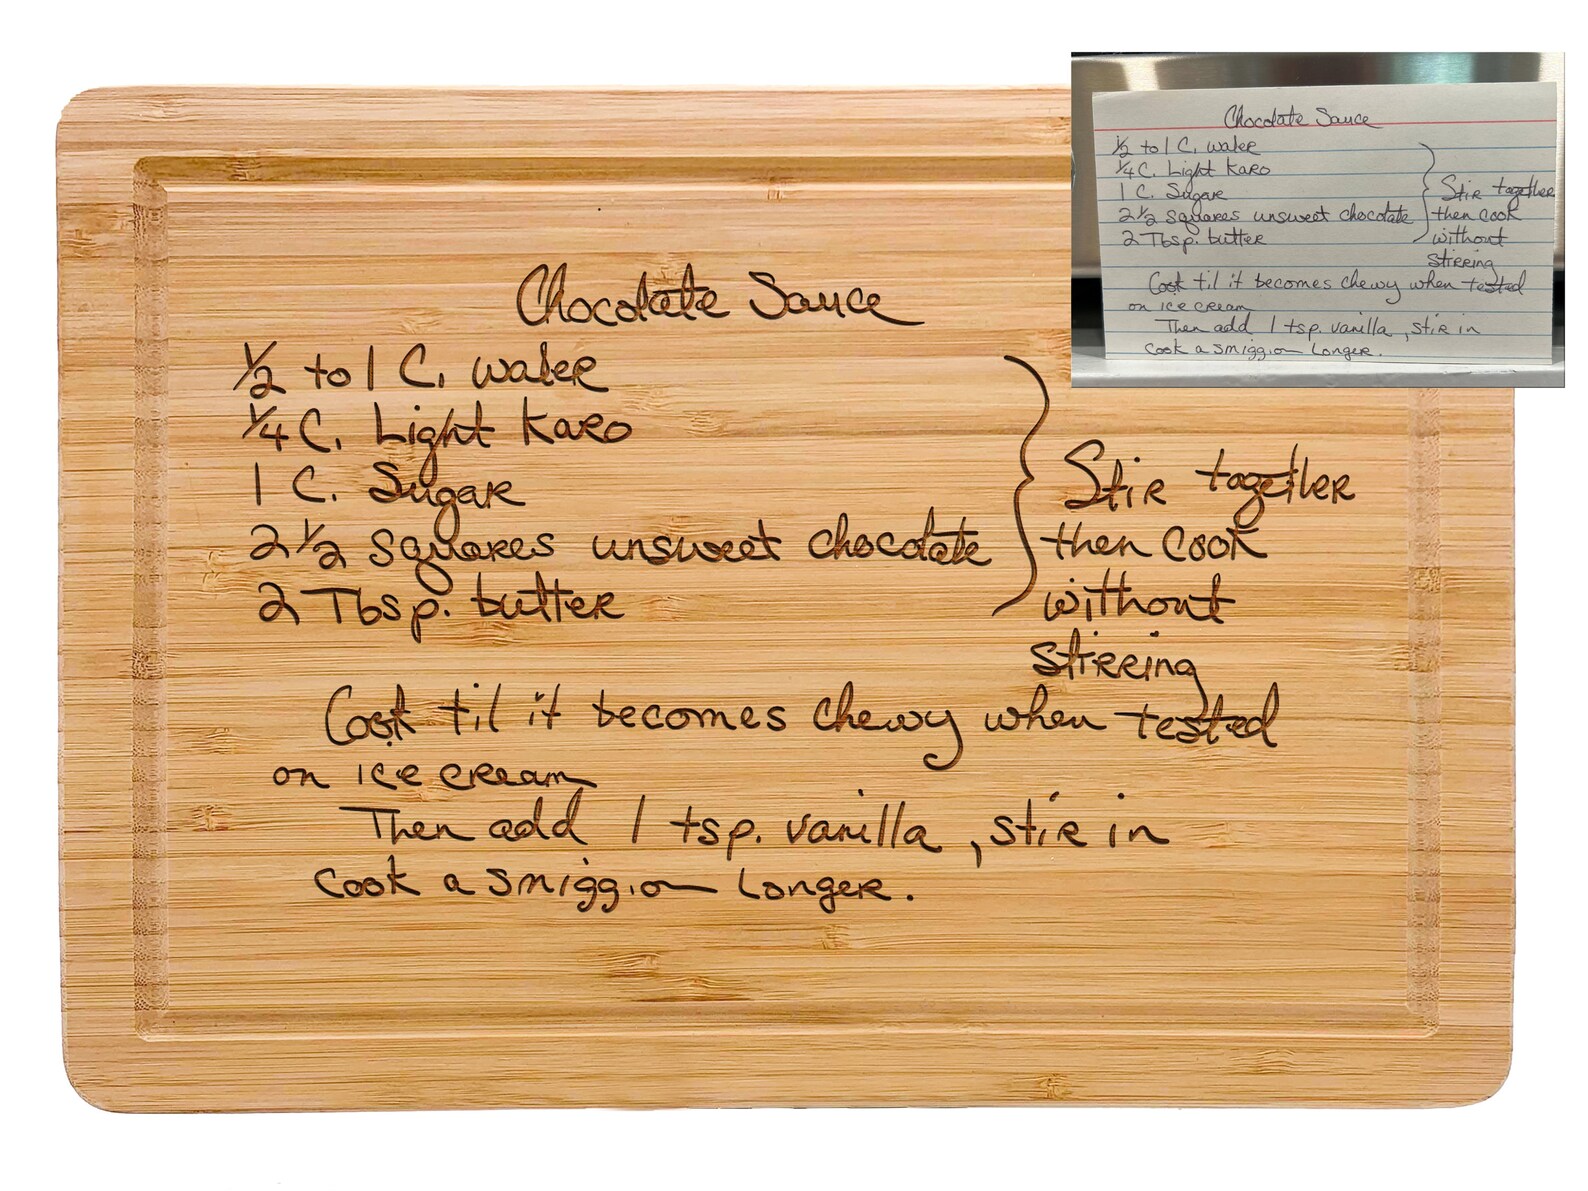 Chocolate Sauce
1/2 to 1 C. water
1/4 C. Light Karo
1 C. Sugar
2 1/2 squares unsweet chocolate
2 Tbsp. butter
Stir together
then cook
without
stirring
Cook til it becomes chewy when tested
on ice cream
Then add 1 tsp. vanilla, stir in
Cook a smiggion Longer.
Chocolate Sauce
1/2 to 1 C. water
1/4 C. Light Karo
1 C. Sugar
2 1/2 squares unsweet chocolate
2 Tbsp. butter
Stir together
then cook
without
stirring
Cook til it becomes chewy when tested
on ice cream
Then add 1 tsp. vanilla, stir in
Cook a smiggion Longer.